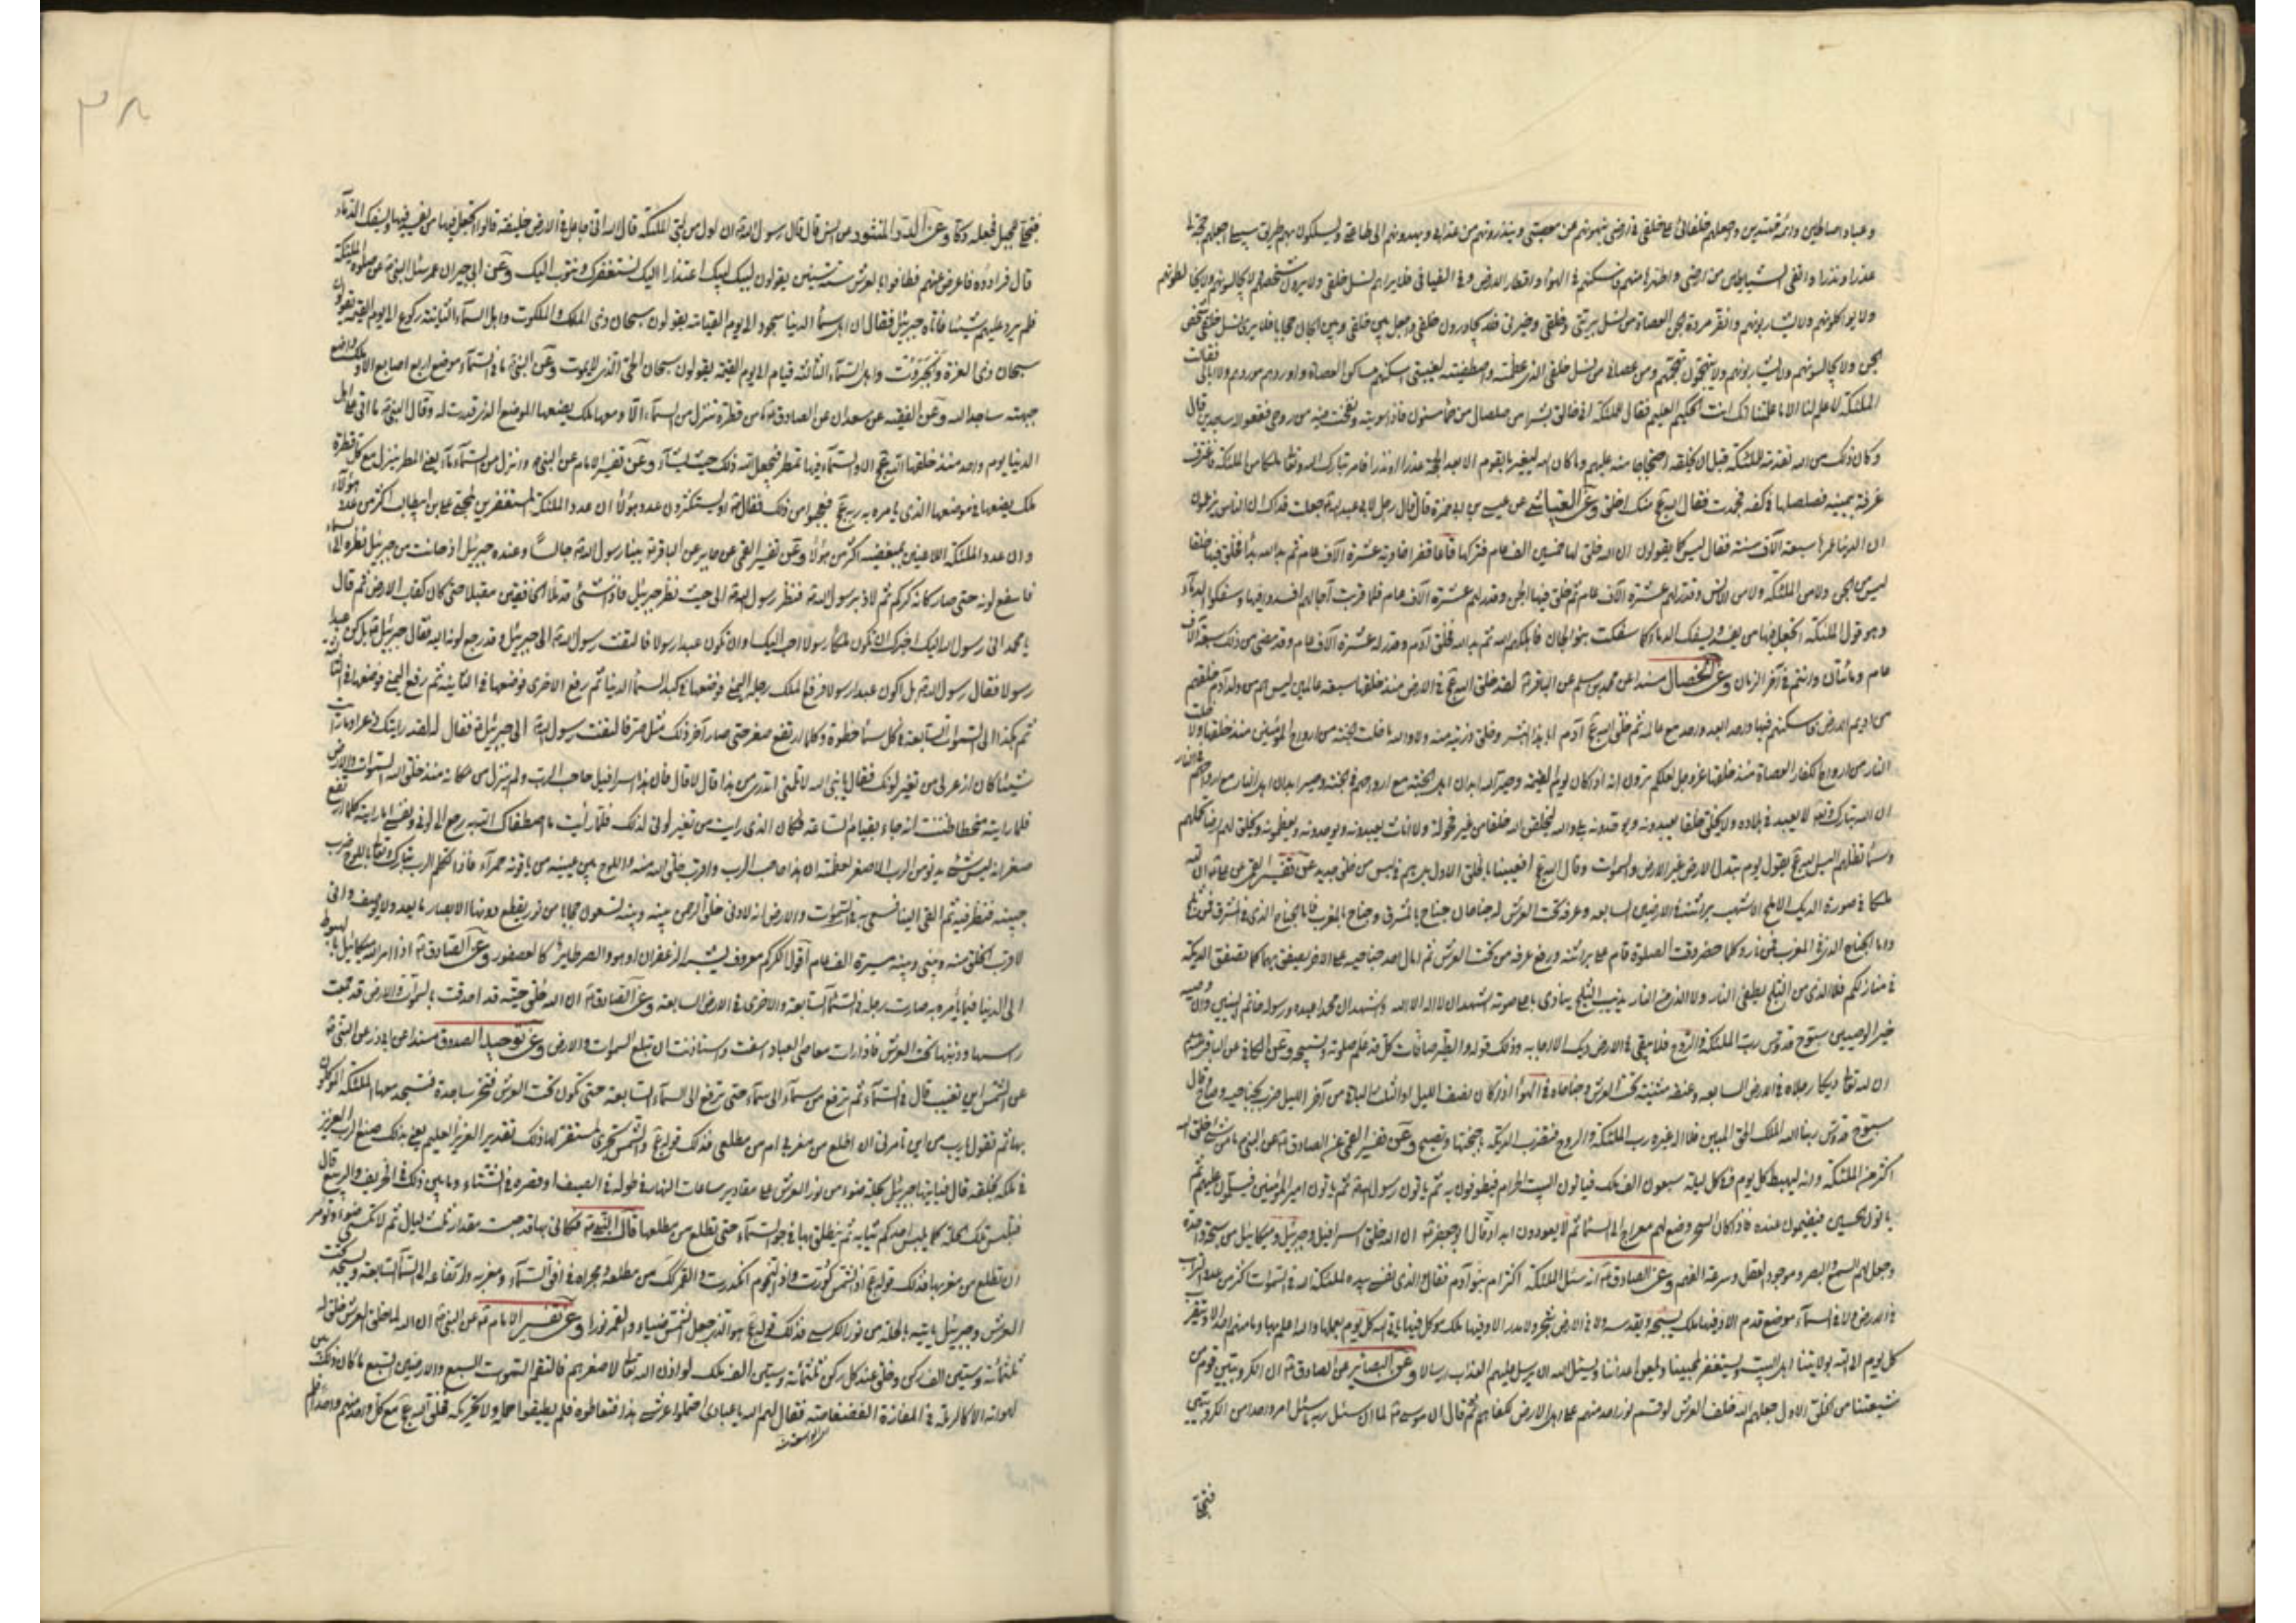 وعبادا صالحين وائمة مهتدين واجعلهم خلفائى على خلقى فى ارضى ينهونهم عن معصيتى وينذرونهم من عذابى ويهدونهم الى طاعتى ويسلكون بهم طريق سبيلى واجعلهم حجة لى
عذرا ونذرا وانفى الشياطين من ارضى واطهرها منهم فاسكنهم فى الهواء واقطار الارض وفى الفيافى فلا يراهم نسل خلقى ولا يرون شخصهم ولا يجالسونهم ولا يخالطونهم
ولا يواكلونهم ولا يشاربونهم وانقل مردة الجن العصاة من نسل بريتى وخلقى وخيرتى فلا يجاورون خلقى واجعل بين خلقى وبين الجان حجابا فلا يرى نسل خلقى شخص
الجن ولا يجالسونهم ولا يشاربونهم ولا يتهجمون تهجمهم ومن عصانى من نسل خلقى الذى عظمته واصطفيته لغيبتى اسكنهم مساكن العصاة واوردهم موردهم ولا ابالى فقالت
الملئكة لا علم لنا الا ما علمتنا انك انت العليم الحكيم فقال للملئكة انى خالق بشرا من صلصال من حمأ مسنون فاذا سويته ونفخت فيه من روحى فقعوا له ساجدين قال
وكان ذلك من الله تقدمة للملئكة قبل ان يخلقه احتجاجا منه عليهم وما كان الله ليغير ما بقوم الا بعد الحجة عذرا او نذرا فامر تبارك وتعالى ملكا من الملئكة فاغترف
غرفة بيمينه فصلصلها فى كفه فجمدت فقال الله عج منك اخلق وعن العياشى عن عيسى بن ابى حمزة قال قال رجل لابى عبد الله جعلت فداك ان الناس يزعمون
ان الدنيا عمرها سبعة آلاف سنة فقال ليس كما يقولون ان الله خلق لها خمسين الف عام فتركها قاعا قفراء خاوية عشرة آلاف عام ثم بدا لله بداء فخلق فيها خلقا
ليس من الجن ولا من الملئكة ولا من الانس وقدر لهم عشرة آلاف عام ثم خلق فيها الجن وقدر لهم عشرة آلاف عام فلما قربت آجالهم افسدوا فيها وسفكوا الدماء
وهو قول الملئكة اتجعل فيها من يفسد فيها ويسفك الدماء كما سفكت بنو الجان فاهلكهم الله ثم بدا لله فخلق آدم وقدر له عشرة آلاف عام وقد مضى من ذلك سبعة آلاف
عام ومائتان وانتم فى آخر الزمان وعن الخصال مسندا عن محمد بن مسلم عن الباقر لقد خلق الله عج فى الارض منذ خلقها سبعة عالمين ليس هم من ولد آدم خلقهم
من اديم الارض فاسكنهم فيها واحد بعد واحد مع عالمه ثم خلق الله عج آدم ابا هذا البشر وخلق ذريته منه ولا والله ما خلت الجنة من ارواح المؤمنين منذ خلقها ولا خلت
النار من ارواح الكفار العصاة منذ خلقها عز وجل لعلكم ترون انه اذا كان يوم القيمة وصير الله ابدان اهل الجنة مع ارواحهم فى الجنة وصير ابدان اهل النار مع ارواحهم فى النار
ان الله تبارك وتعالى لا يعبد فى بلاده ولا يخلق خلقا يعبدونه ويوحدونه بلى والله ليخلقن الله خلقا من غير فحولة ولا اناث يعبدونه ويوحدونه ويعظمونه ويخلق لهم ارضا تحملهم
وسماء تظلهم اليس الله عج يقول يوم تبدل الارض غير الارض والسموات وقال الله عج افعيينا بالخلق الاول بل هم فى لبس من خلق جديد وعن تفسير القمى ان لله
ملكا فى صورة الديك الاملح الاشهب براثنه فى الارض السابعة وعرفه تحت العرش له جناحان جناح بالمشرق وجناح بالمغرب فاما الجناح الذى فى المشرق فمن ثلج
واما الجناح الذى فى المغرب فمن نار وكلما حضر وقت الصلوة قام على براثنه ورفع عرفه من تحت العرش ثم امال احد جناحيه على الاخر يصفق بهما كما يصفق الديكة
فى منازلكم فلا الذى من الثلج يطفئ النار ولا الذى من النار يذيب الثلج ينادى باعلى صوته اشهد ان لا اله الا الله واشهد ان محمدا عبده ورسوله خاتم النبيين وان وصيه
خير الوصيين سبوح قدوس رب الملئكة والروح فلا يبقى فى الارض ديك الا اجابه وذلك قوله والطير صافات كل قد علم صلوته وتسبيحه وعن الكافى عن الباقر
ان لله تعالى ديكا رجلاه فى الارض السابعة وعنقه مثنية تحت العرش وجناحاه فى الهواء اذا كان نصف الليل او الثلث الثانى من آخر الليل ضرب بجناحيه وصاح قال
سبوح قدوس ربنا الله الملك الحق المبين فلا اله غيره رب الملئكة والروح فتضرب الديكة باجنحتها وتصيح وعن تفسير القمى عن الصادق عن النبى ما من شىء خلق الله
اكثر من الملئكة وانه ليهبط كل يوم فى كل ليلة سبعون الف ملك فيأتون البيت الحرام فيطوفون به ثم يأتون رسول الله ثم يأتون امير المؤمنين فيسلمون عليه ثم
يأتون الحسين فيقيمون عنده فاذا كان السحر وضع لهم معراج الى السماء ثم لا يعودون ابدا وقال ابو جعفر ان الله خلق اسرافيل وجبرئيل وميكائيل من سبحة واحدة
وجعل لهم السمع والبصر وموجود العقل وسرعة الفهم وعن الصادق انه سئل الملئكة اكثر ام بنو آدم فقال والذى نفسى بيده لملئكة الله فى السموات اكثر من عدد التراب
فى الارض ولا فى السماء موضع قدم الا وفيها ملك يسبحه ويقدسه ولا فى الارض شجر ولا مدر الا وفيها ملك موكل فيها يأتى الله كل يوم بعملها والله اعلم بها وما منهم احد الا ويتقرب
كل يوم الى الله بولايتنا اهل البيت ويستغفر لمحبينا ويلعن اعدائنا ويسئل الله ان يرسل عليهم العذاب ارسالا وعن البصائر عن الصادق ان الكروبيين قوم من
شيعتنا من الخلق الاول جعلهم الله خلف العرش لو قسم نور واحد منهم على اهل الارض لكفاهم ثم قال ان موسى لما ان سئل ربه ما سئل امر واحدا من الكروبيين
فتجلى
٣٨
فتجلى للجبل فجعله دكا وعن الدر المنثور عن انس قال قال رسول الله ان اول من لبى الملئكة قال الله انى جاعل فى الارض خليفة قالوا اتجعل فيها من يفسد فيها ويسفك الدماء
قال فرادوه فاعرض عنهم فطافوا بالعرش ست سنين يقولون لبيك لبيك اعتذارا اليك نستغفرك ونتوب اليك وعن ابن جبير ان عمر سئل النبى عن صلوة الملئكة
فلم يرد عليهم شيئا فاتاه جبرئيل فقال ان اهل السماء الدنيا سجود الى يوم القيامة يقولون سبحان ذى الملك والملكوت واهل السماء الثانية ركوع الى يوم القيمة يقولون
سبحان ذى العزة والجبروت واهل السماء الثالثة قيام الى يوم القيمة يقولون سبحان الحى الذى لا يموت وعن النبى ما فى السماء موضع اربع اصابع الا وملك واضع
جبهته ساجدا لله وعن الفقيه عن سعدان عن الصادق ما من قطرة تنزل من السماء الا ومعها ملك يضعها الموضع الذى قدرت له وقال النبى ما اتى على اهل
الدنيا يوم واحد منذ خلقها الله عج الا والسماء فيها تمطر فيجعل الله ذلك حيث يشاء وعن تفسير الامام عن النبى وانزل من السماء ماء يعنى المطر ينزل مع كل قطرة
ملك يضعها فى موضعها الذى يأمره به ربه عج فعجبوا من ذلك فقال او تستكثرون عدد هؤلاء ان عدد الملئكة المستغفرين لمحبى على بن ابى طالب اكثر من عدد هؤلاء
وان عدد الملئكة اللاعنين لمبغضيه اكثر من هؤلاء وعن تفسير القمى عن جابر عن الباقر بينا رسول الله جالسا وعنده جبرئيل اذ حانت من جبرئيل نظرة الى السماء
فامتقع لونه حتى صار كانه كركم ثم لاذ برسول الله فنظر رسول الله الى حيث نظر جبرئيل فاذا شىء قد ملأ الخافقين مقبلا حتى كان كقاب الارض ثم قال
يا محمد انى رسول الله اليك اخبرك ان تكون ملكا رسولا احب اليك او ان تكون عبدا رسولا فالتفت رسول الله الى جبرئيل وقد رجع لونه اليه فقال جبرئيل بل كن عبدا
رسولا فقال رسول الله بل اكون عبدا رسولا فرفع الملك رجله اليمنى فوضعها فى كبد السماء الدنيا ثم رفع الاخرى فوضعها فى الثانية ثم رفع اليمنى فوضعها فى الثالثة
ثم هكذا الى السموات السابعة كل سماء خطوة وكلما ارتفع صغر حتى صار آخر ذلك مثل الصر فالتفت رسول الله الى جبرئيل فقال لقد رأيتك ذعرا وما رأيت
شيئا كان اذعر لى من تغير لونك فقال يا نبى الله لا تلمنى اتدرى من هذا قال لا قال هذا اسرافيل حاجب الرب ولم ينزل من مكانه منذ خلق الله السموات والارض
فلما رايته منحطا ظننت انه جاء بقيام الساعة فكان الذى رايت من تغير لونى لذلك فلما رأيت ما اصطفاك الله به رجع الى لونى ونفسى اما رايته كلما ارتفع
صغر انه ليس شىء يدنو من الرب الا صغر لعظمته ان هذا حاجب الرب واقرب خلق الله منه واللوح بين عينيه من ياقوتة حمراء فاذا تكلم الرب تبارك وتعالى بالوحى ضرب اللوح
جبينه فنظر فيه ثم القى الينا نسعى به فى السموات والارض انه لادنى خلق الرحمن منه وبينه وبينه تسعون حجابا من نور يقطع دونها الابصار ما يعد ولا يوصف وانى
لاقرب الخلق منه وبينى وبينه مسيرة الف عام اقول الكركم معروف يشبه الزعفران او هو والصر طاير كالعصفور وعن الصادق اذا امر الله ميكائيل بالهبوط
الى الدنيا فيما يأمره به صارت رجله فى السماء السابعة والاخرى فى الارض السابعة وعن الصادق ان الله خلق حية قد احدقت بالسموات والارض قد جمعت
رأسها وذنبها تحت العرش فاذا رأت معاصى العباد اسفت واستأذنت ان تبلع السموات والارض وعن توحيد الصدوق مسندا عن ابى ذر عن النبى
عن الشمس اين تغيب قال فى السماء ثم ترفع من سماء الى سماء حتى ترفع الى السماء السابعة حتى تكون تحت العرش فتخر ساجدة فتسجد معها الملئكة الموكلون
بها ثم تقول يا رب من اين تأمرنى ان اطلع من مغربى ام من مطلعى فذلك قوله عج والشمس تجرى لمستقر لها ذلك تقدير العزيز العليم يعنى بذلك صنع الرب العزيز
فى ملكه بخلقه قال فيأتيها جبرئيل بحلة ضوء من نور العرش على مقادير ساعات النهار فى طوله فى الصيف او قصره فى الشتاء وما بين ذلك فى الخريف والربيع قال
فتلبس تلك الحلة كما يلبس احدكم ثيابه ثم ينطلق بها فى جو السماء حتى تطلع من مطلعها قال النبى فكانى بها قد حبست مقدار ثلث ليال ثم لا تكسى ضوءا وتؤمر
ان تطلع من مغربها فذلك قوله عج اذا الشمس كورت واذا النجوم انكدرت والقمر كذلك من مطلعه ومجراه فى افق السماء ومغربه وارتفاعه الى السماء السابعة ويسجد تحت
العرش وجبرئيل يأتيه بالحلة من نور الكرسى فذلك قوله عج هو الذى جعل الشمس ضياء والقمر نورا وعن تفسير الامام عن النبى ان الله لما خلق العرش خلق له
ثلثمائة وستين الف ركن وخلق عند كل ركن ثلثمائة وستين الف ملك لو اذن الله تعالى لاصغرهم فالتقم السموات السبع والارضين السبع ما كان ذلك بين
لهواته الا كالرملة فى المفازة الفضفاضة فقال لهم الله يا عبادى احتملوا عرشى هذا فتعاطوه فلم يطيقوا حمله ولا تحريكه فخلق الله عج مع كل واحد منهم واحدا فلم
اى الواسعة